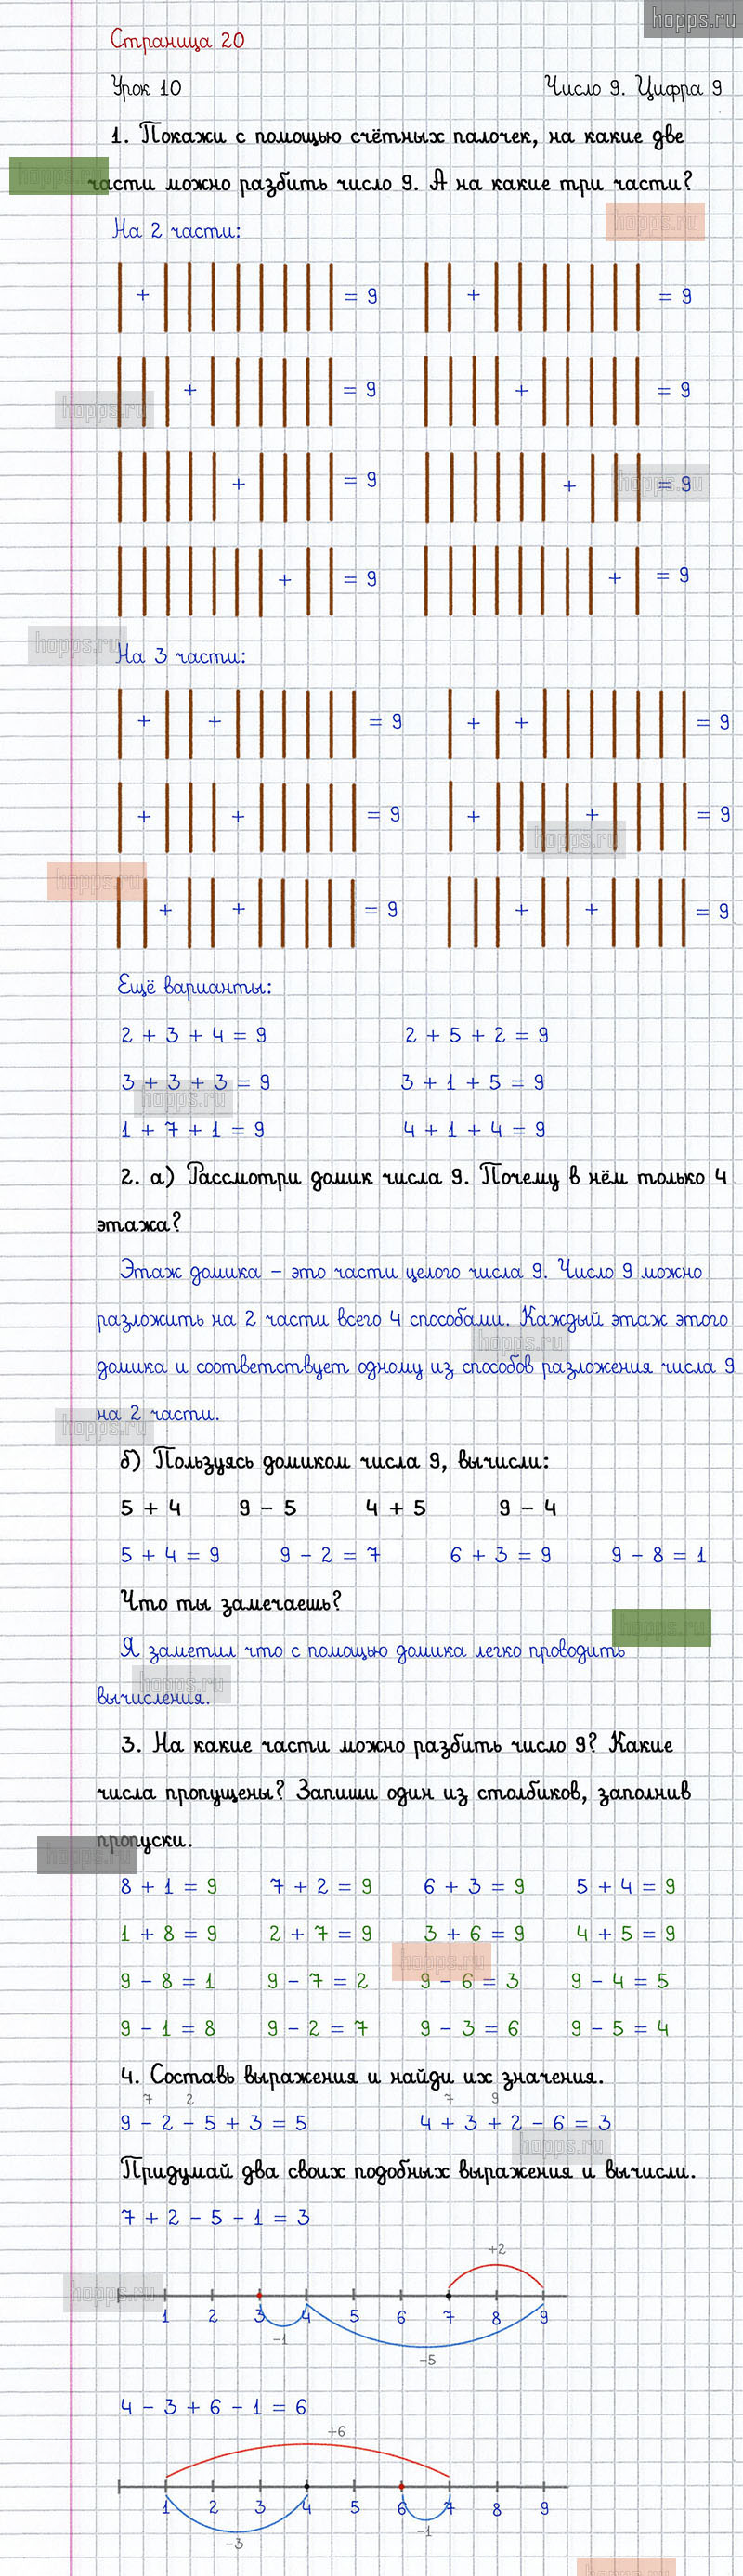 hopps.ru
Страница 20
Урок 10 Число 9. Цифра 9
1. Покажи с помощью счётных палочек, на какие две
hopps.ru
части можно разбить число 9. А на какие три части?
hopps.ru
На 2 части:
+ = 9 + = 9
+ = 9 + = 9
hopps.ru
+ = 9 + = 9
hopps.ru
+ = 9 + = 9
hopps.ru
На 3 части:
+ + = 9 + + = 9
+ + = 9 + + = 9
hopps.ru
hopps.ru
+ + = 9 + + = 9
Ещё варианты:
2 + 3 + 4 = 9 2 + 5 + 2 = 9
3 + 3 + 3 = 9 3 + 1 + 5 = 9
hopps.ru
1 + 7 + 1 = 9 4 + 1 + 4 = 9
2. а) Рассмотри домик числа 9. Почему в нём только 4
этажа?
Этаж домика – это части целого числа 9. Число 9 можно
разложить на 2 части всего 4 способами. Каждый этаж этого
hopps.ru
домика и соответствует одному из способов разложения числа 9
на 2 части.
hopps.ru
б) Пользуясь домиком числа 9, вычисли:
5 + 4 9 – 5 4 + 5 9 – 4
5 + 4 = 9 9 – 2 = 7 6 + 3 = 9 9 – 8 = 1
Что ты замечаешь?
hopps.ru
Я заметил что с помощью домика легко проводить
hopps.ru
вычисления.
3. На какие части можно разбить число 9? Какие
числа пропущены? Запиши один из столбиков, заполнив
пропуски.
hopps.ru
8 + 1 = 9 7 + 2 = 9 6 + 3 = 9 5 + 4 = 9
1 + 8 = 9 2 + 7 = 9 3 + 6 = 9 4 + 5 = 9
hopps.ru
9 – 8 = 1 9 – 7 = 2 9 – 6 = 3 9 – 4 = 5
9 – 1 = 8 9 – 2 = 7 9 – 3 = 6 9 – 5 = 4
4. Составь выражения и найди их значения.
7 2 7 9
9 – 2 – 5 + 3 = 5 4 + 3 + 2 – 6 = 3
hopps.ru
Придумай два своих подобных выражения и вычисли.
7 + 2 – 5 – 1 = 3
+2
hopps.ru
1 2 3 4 5 6 7 8 9
–1
–5
4 – 3 + 6 – 1 = 6
+6
1 2 3 4 5 6 7 8 9
–1
–3
hopps.ru